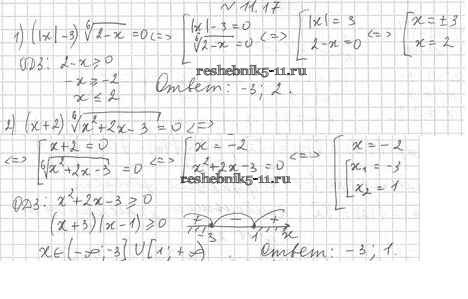 № 11.17
1) (|x|-3) ⁶√(2-x) = 0 <=> [ |x|-3=0 ; ⁶√(2-x) = 0 <=> [ |x| = 3 ; 2-x=0 <=> [ x = ±3 ; x = 2
ОДЗ: 2-x ≥ 0
-x ≥ -2
x ≤ 2
Ответ: -3; 2.
reshebnik5-11.ru
2) (x+2) ⁶√(x²+2x-3) = 0 <=>
<=> [ x+2 = 0 ; ⁶√(x²+2x-3) = 0 <=> [ x = -2 ; x²+2x-3 = 0 <=> [ x = -2 ; [ x₁ = -3 ; x₂ = 1
reshebnik5-11.ru
ОДЗ: x²+2x-3 ≥ 0
(x+3)(x-1) ≥ 0
+ - +
-3 1 x
x∈(-∞;-3] ∪ [1;+∞).
Ответ: -3; 1.